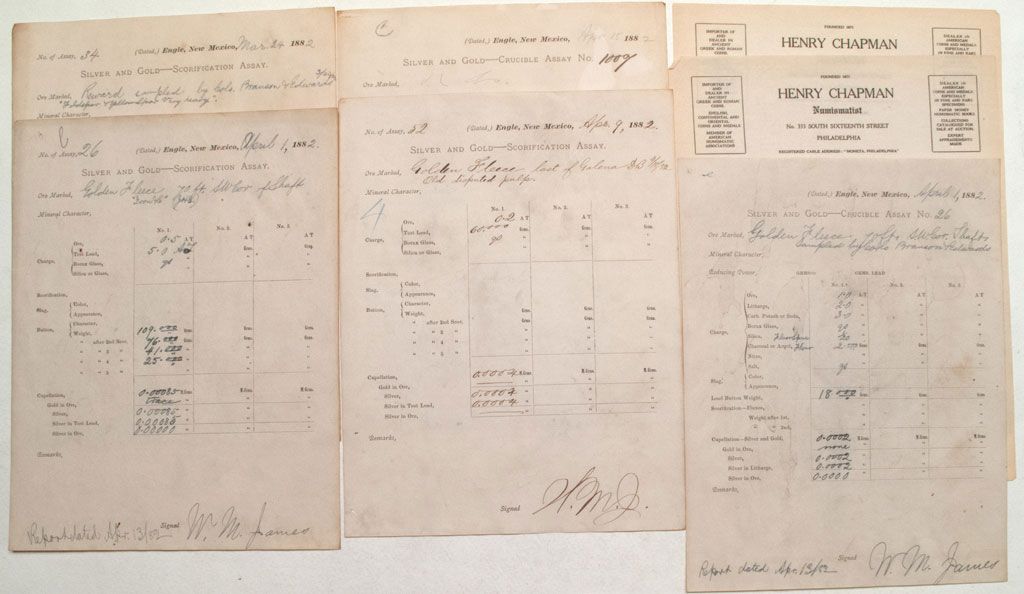 (Dated,) Engle, New Mexico, Mar. 24 1882
No. of Assay, 34
SILVER AND GOLD—SCORIFICATION ASSAY.
Ore Marked, Reward sampled by Cols. Branson & Edwards
Mineral Character,
(Dated,) Engle, New Mexico, April 1, 1882.
No. of Assay, 26
SILVER AND GOLD—SCORIFICATION ASSAY.
Ore Marked, Golden Fleece 70 ft. SW Cor of Shaft
Mineral Character,
No. 1. No. 2. No. 3.
Ore, 0.5 A T A T A T
Test Lead, 50 Gms. Gms.
Charge, Borax Glass, go
Silica or Glass,
Scorification,
Color,
Slag, Appearance,
Character,
Button, Weight, 109.000 Gms. Gms.
" after 2nd Scor. 76.000
" " 3 " 41.000
" " 4 " 25.000
" " 5 "
Cupellation, 0.00085 M.Gms. M.Gms.
Gold in Ore, trace
Silver, 0.00085
Silver in Test Lead, 0.00085
Silver in Ore, 0.00000
Remarks,
Report dated Apr. 13/82 Signed W. M. James
C
(Dated,) Engle, New Mexico, Apr. 18 1882
SILVER AND GOLD—CRUCIBLE ASSAY No. 1007
Ore Marked,
(Dated,) Engle, New Mexico, Apr. 9, 1882.
No. of Assay, 32
SILVER AND GOLD—SCORIFICATION ASSAY.
Ore Marked, Golden Fleece last of Galena
Old disputed pulps.
Mineral Character,
4
No. 1. No. 2. No. 3.
Ore, 0.2 A T A T A T
Test Lead, 60.000 Gms. Gms. Gms.
Charge, Borax Glass, go
Silica or Glass,
Scorification,
Color,
Slag, Appearance,
Character,
Button, Weight, Gms. Gms. Gms.
" after 2nd Scor.
" " 3 "
" " 4 "
" " 5 "
Cupellation, 0.0004 M.Gms. M.Gms. M.Gms.
Gold in Ore,
Silver, 0.0004
Silver in Test Lead, 0.0004
Silver in Ore,
Remarks,
Signed W. M. J.
IMPORTER OF AND DEALER IN ANCIENT GREEK AND ROMAN COINS.
FOUNDED 1877
HENRY CHAPMAN
DEALER IN AMERICAN COINS AND MEDALS ESPECIALLY IN FINE AND RARE
IMPORTER OF AND DEALER IN ANCIENT GREEK AND ROMAN COINS.
ENGLISH, CONTINENTAL AND ORIENTAL COINS AND MEDALS
MEMBER OF AMERICAN NUMISMATIC ASSOCIATIONS
FOUNDED 1877
HENRY CHAPMAN
Numismatist
No. 333 SOUTH SIXTEENTH STREET
PHILADELPHIA
REGISTERED CABLE ADDRESS: "MONETA, PHILADELPHIA"
DEALER IN AMERICAN COINS AND MEDALS ESPECIALLY IN FINE AND RARE SPECIMENS
PAPER MONEY NUMISMATIC BOOKS
COLLECTIONS CATALOGUED FOR SALE AT AUCTION.
EXPERT APPRAISEMENTS MADE
(Dated,) Engle, New Mexico, April 1, 1882
SILVER AND GOLD—CRUCIBLE ASSAY No. 26
Ore Marked, Golden Fleece 70 ft. SW Cor. Shaft
sampled by Cols Branson & Edwards
Mineral Character,
Reducing Power, GMS. LEAD
No. 1. No. 2. No. 3.
Ore, A T A T A T
Litharge, 2.0
Carb. Potash or Soda, 3.0
Borax Glass, go
Charge, Silica,
Charcoal or Argol, Flour
Nitre,
Salt, go
Color,
Slag, Appearance,
Lead Button Weight, 18.000 Gms. Gms. Gms.
Scorification—Fluxes,
Weight after 1st,
" " 2nd,
Cupellation—Silver and Gold, 0.0002 M.Gms. M.Gms. M.Gms.
Gold in Ore, none
Silver, 0.0002
Silver in Litharge, 0.0002
Silver in Ore, 0.0000
Remarks,
Report dated Apr. 13/82 Signed W. M. James